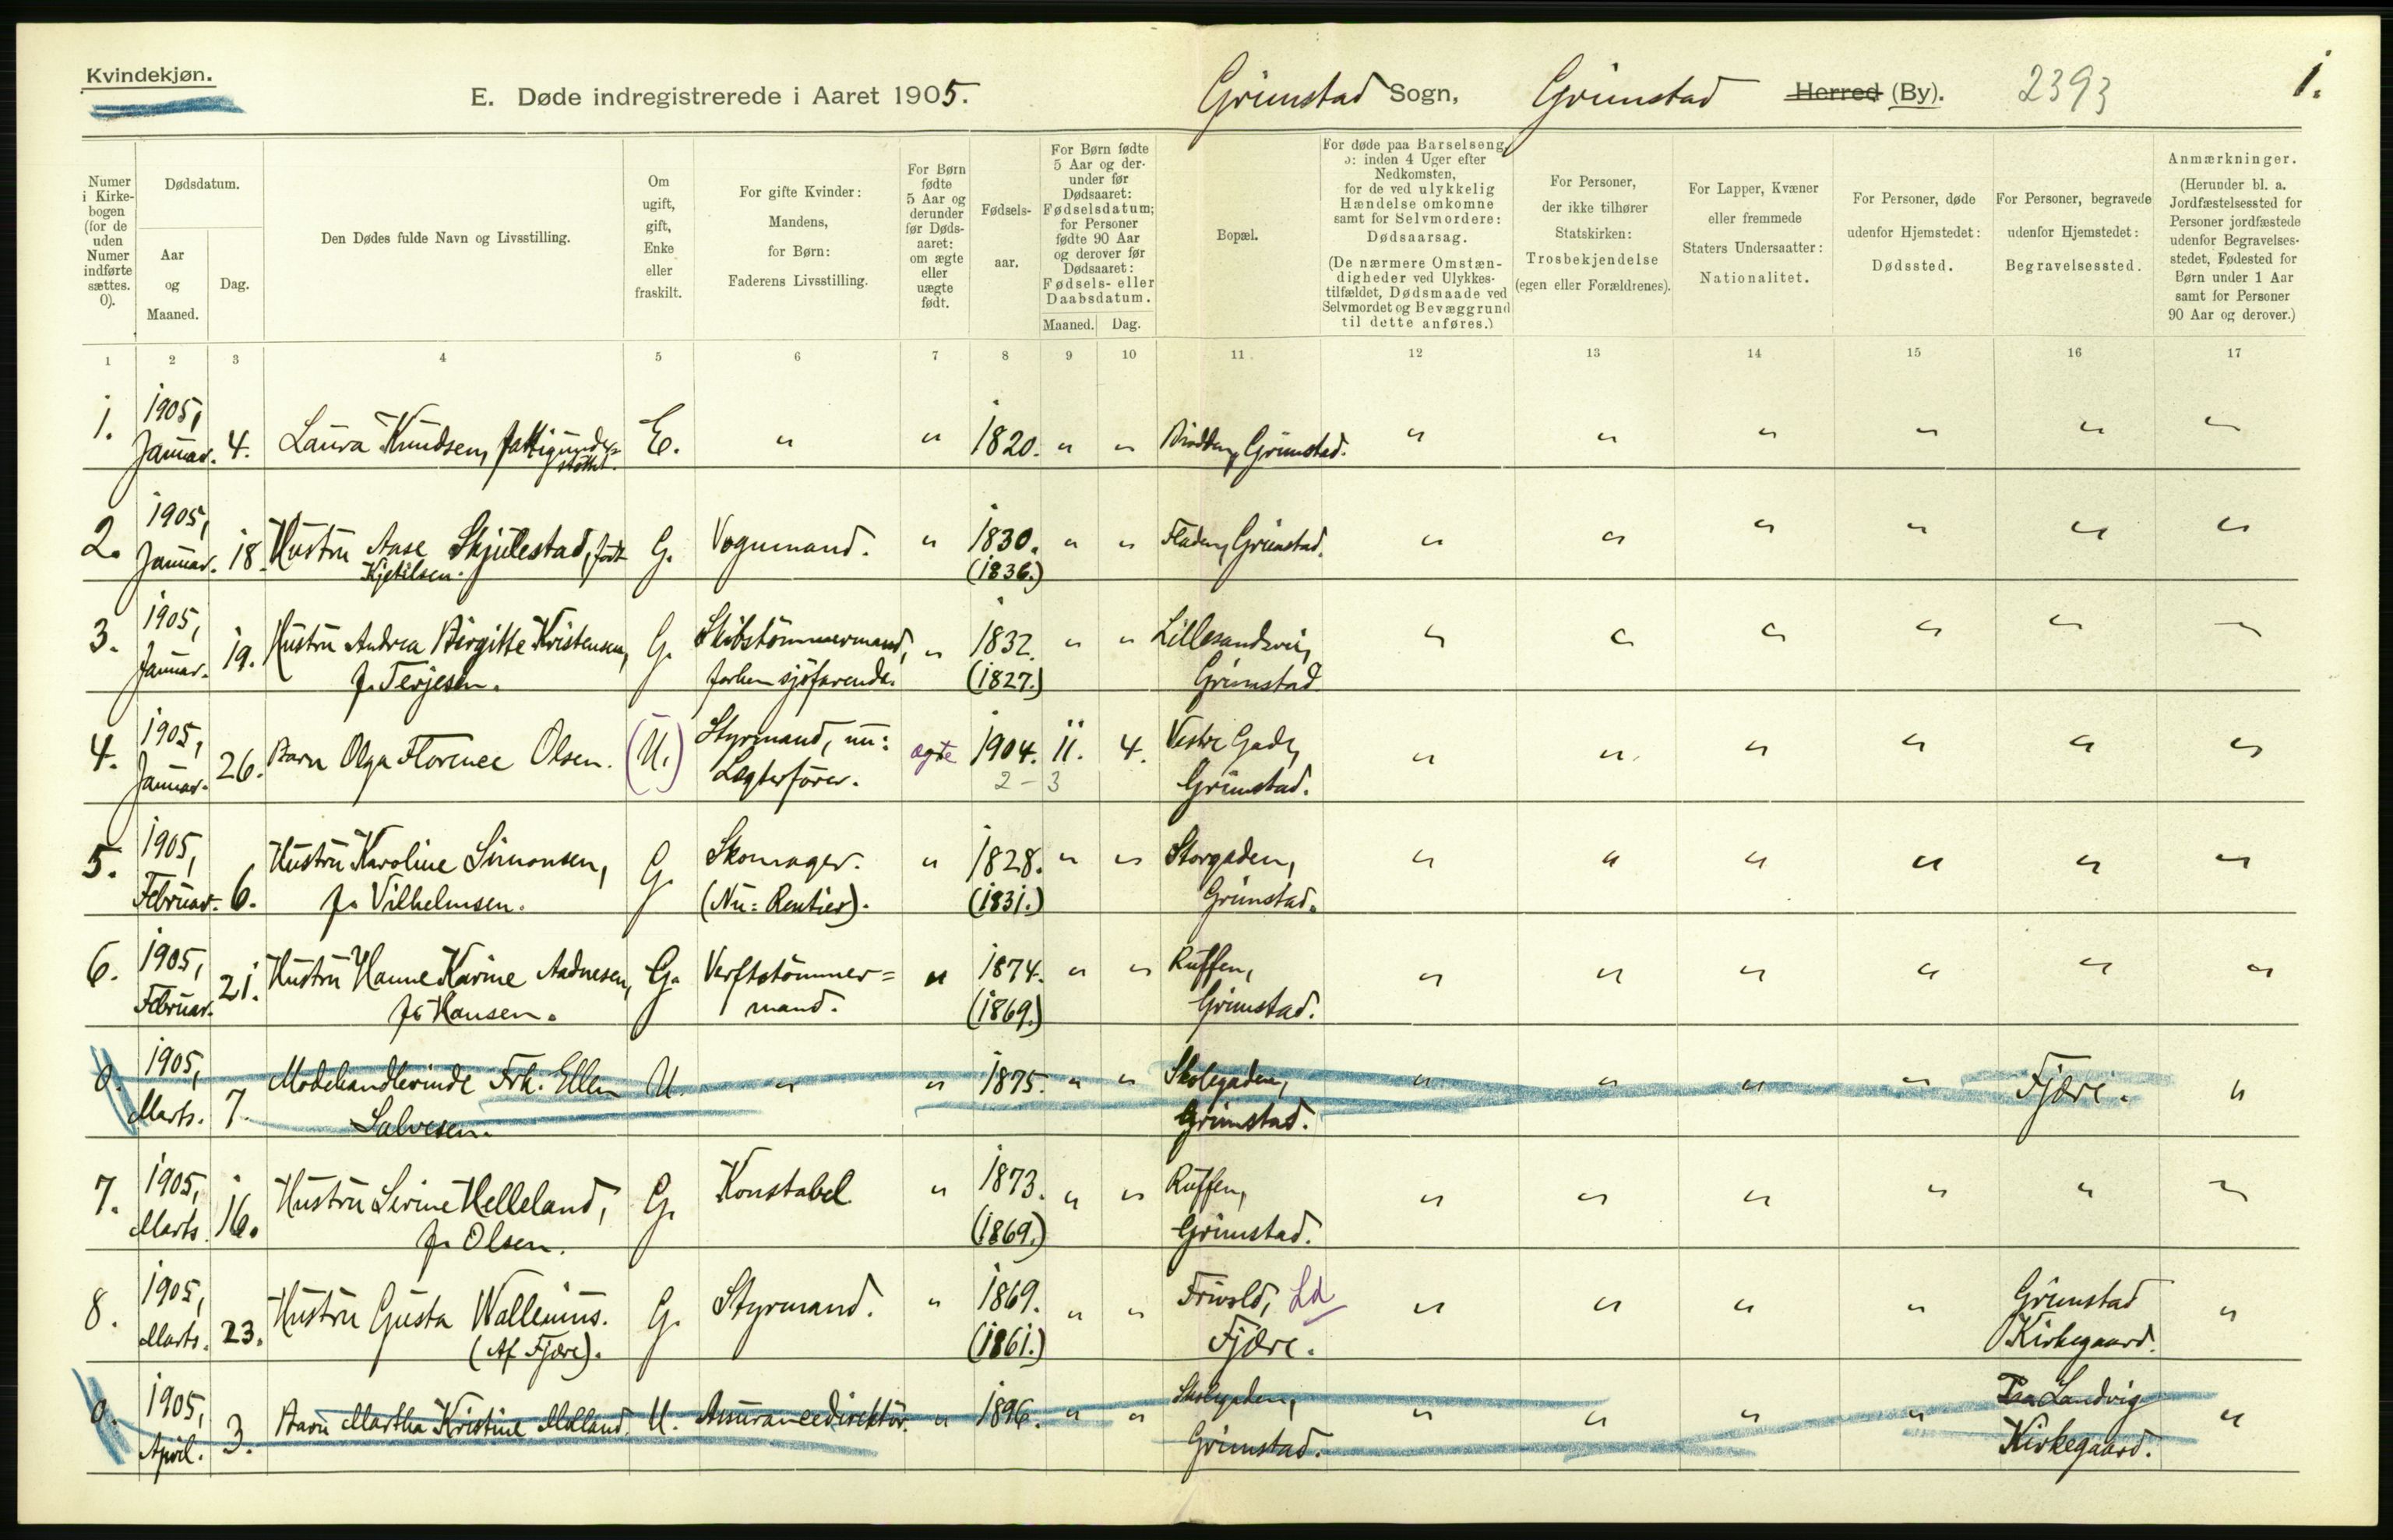 Kvindekjøn.
E. Døde indregistrerede i Aaret 1905.
Grimstad Sogn, Grimstad Herred (By). 2393 1.
Numer i Kirkebogen (for de uden Numer indførte sættes. 0).
Dødsdatum.
Aar og Maaned.
Dag.
Den Dødes fulde Navn og Livsstilling.
Om ugift, gift, Enke eller fraskilt.
For gifte Kvinder: Mandens, for Børn: Faderens Livsstilling.
For Børn fødte 5 Aar og derunder før Dødsaaret: om ægte eller uægte født.
Fødselsaar.
For Børn fødte 5 Aar og derunder før Dødsaaret: Fødselsdatum; for Personer fødte 90 Aar og derover før Dødsaaret: Fødsels- eller Daabsdatum.
Maaned. Dag.
Bopæl.
For døde paa Barselseng, ɔ: inden 4 Uger efter Nedkomsten, for de ved ulykkelig Hændelse omkomne samt for Selvmordere: Dødsaarsag. (De nærmere Omstændigheder ved Ulykkestilfældet, Dødsmaade ved Selvmordet og Bevæggrund til dette anføres.)
For Personer, der ikke tilhører Statskirken: Trosbekjendelse (egen eller Forældrenes).
For Lapper, Kvæner eller fremmede Staters Undersaatter: Nationalitet.
For Personer, døde udenfor Hjemstedet: Dødssted.
For Personer, begravede udenfor Hjemstedet: Begravelsessted.
Anmærkninger. (Herunder bl. a. Jordfæstelsessted for Personer jordfæstede udenfor Begravelsesstedet, Fødested for Børn under 1 Aar samt for Personer 90 Aar og derover.)
1 2 3 4 5 6 7 8 9 10 11 12 13 14 15 16 17
1. 1905, Januar. 4. Laura Knudsen, fattigunderstøttet. E. " " 1820. " " Grimstad. " " " " " "
2. 1905, Januar. 18. Hustru Aase Skjulestad, født Kjetilsen. G. Vognmand. " 1830. (1836.) " " Fladen, Grimstad. " " " " " "
3. 1905, Januar. 19. Hustru Andrea Birgitte Kristensen, f. Terjesen. G. Skibstömmermand, forhen sjöfarende. " 1832. (1827.) " " Lillesandsvei, Grimstad. " " " " " "
4. 1905, Januar. 26. Barn Olga Florence Olsen. (U.) Styrmand, nu: Lægterförer. ægte 1904. 11. 4. Vestre Gade, Grimstad. " " " " " "
2 - 3
5. 1905, Februar. 6. Hustru Karoline Simonsen, f. Vilhelmsen. G. Skomager. (Nu: Rentier). " 1828. (1831.) " " Storgaden, Grimstad. " " " " " "
6. 1905, Februar. 21. Hustru Hanne Karine Aadnesen, f. Hansen. G. Verftstömmermand. " 1874. (1869.) " " Ruffen, Grimstad. " " " " " "
0. 1905, Marts. 7. Modehandlerinde Frk. Ellen Salvesen. U. " " 1875. " " Skolegaden, Grimstad. " " " " Fjære. "
7. 1905, Marts. 16. Hustru Serine Helleland, f. Olsen. G. Konstabel " 1873. (1869.) " " Ruffen, Grimstad. " " " " " "
8. 1905, Marts. 23. Hustru Gusta Wallenius. (Af Fjære). G. Styrmand. " 1869. (1861.) " " Frivold, Ld Fjære. " " " " Grimstad Kirkegaard. "
0. 1905, April. 3. Barn Martha Kristine Mølland. U. Assurancedirektör. " 1896. " " Skolegaden, Grimstad. " " " " Paa Landvig Kirkegaard. "